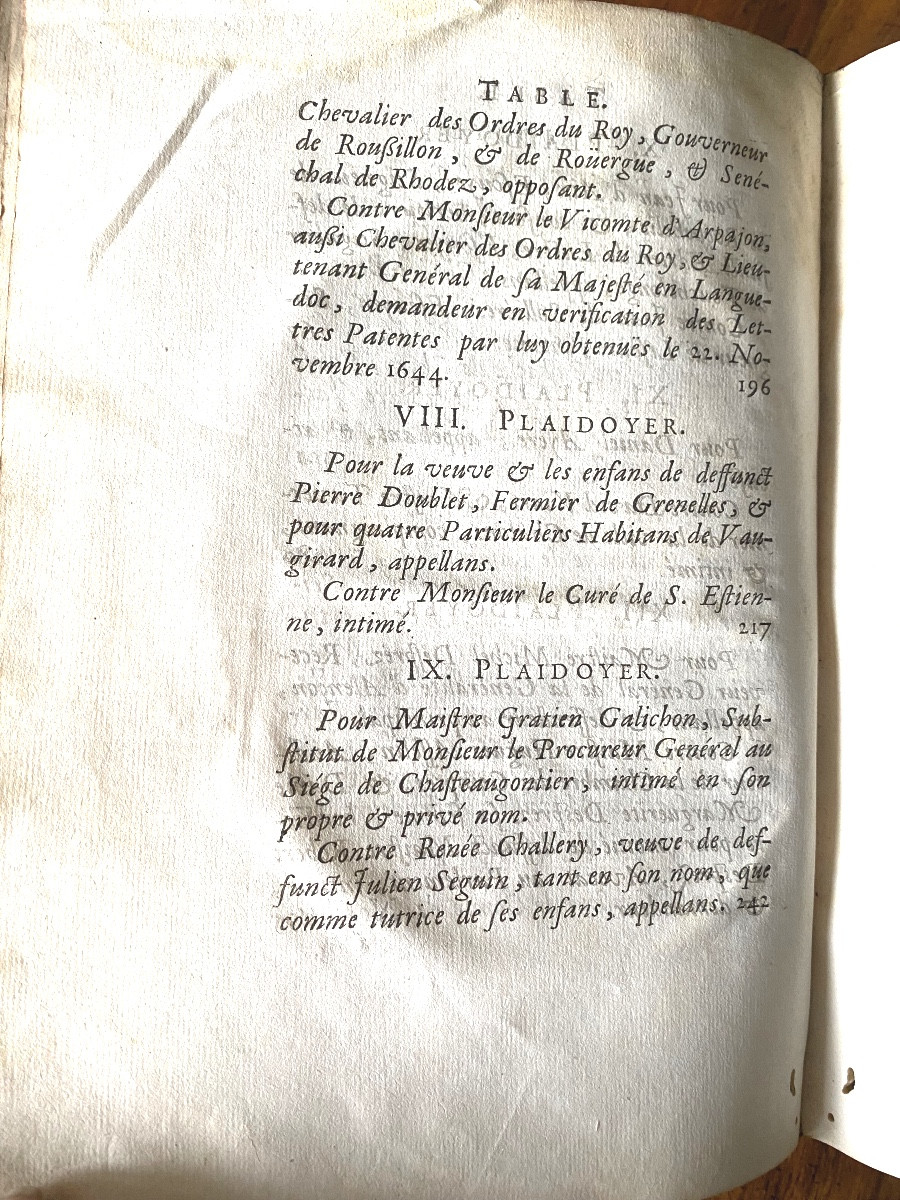 TABLE.
Chevalier des Ordres du Roy, Gouverneur
de Roußillon, & de Roüergue, & Sené-
chal de Rhodez, opposant.
Contre Monsieur le Vicomte d'Arpajon,
außi Chevalier des Ordres du Roy, & Lieu-
tenant Genéral de sa Majesté en Langue-
doc, demandeur en verification des Let-
tres Patentes par luy obtenuës le 22. No-
vembre 1644. 196
VIII. PLAIDOYER.
Pour la veuve & les enfans de deffunct
Pierre Doublet, Fermier de Grenelles, &
pour quatre Particuliers Habitans de Vau-
girard, appellans.
Contre Monsieur le Curé de S. Estien-
ne, intimé. 217
IX. PLAIDOYER.
Pour Maistre Gratien Galichon, Sub-
stitut de Monsieur le Procureur Genéral au
Siége de Chasteaugontier, intimé en son
propre & privé nom.
Contre Renée Challery, veuve de def-
funct Julien Seguin, tant en son nom, que
comme tutrice de ses enfans, appellans. 242